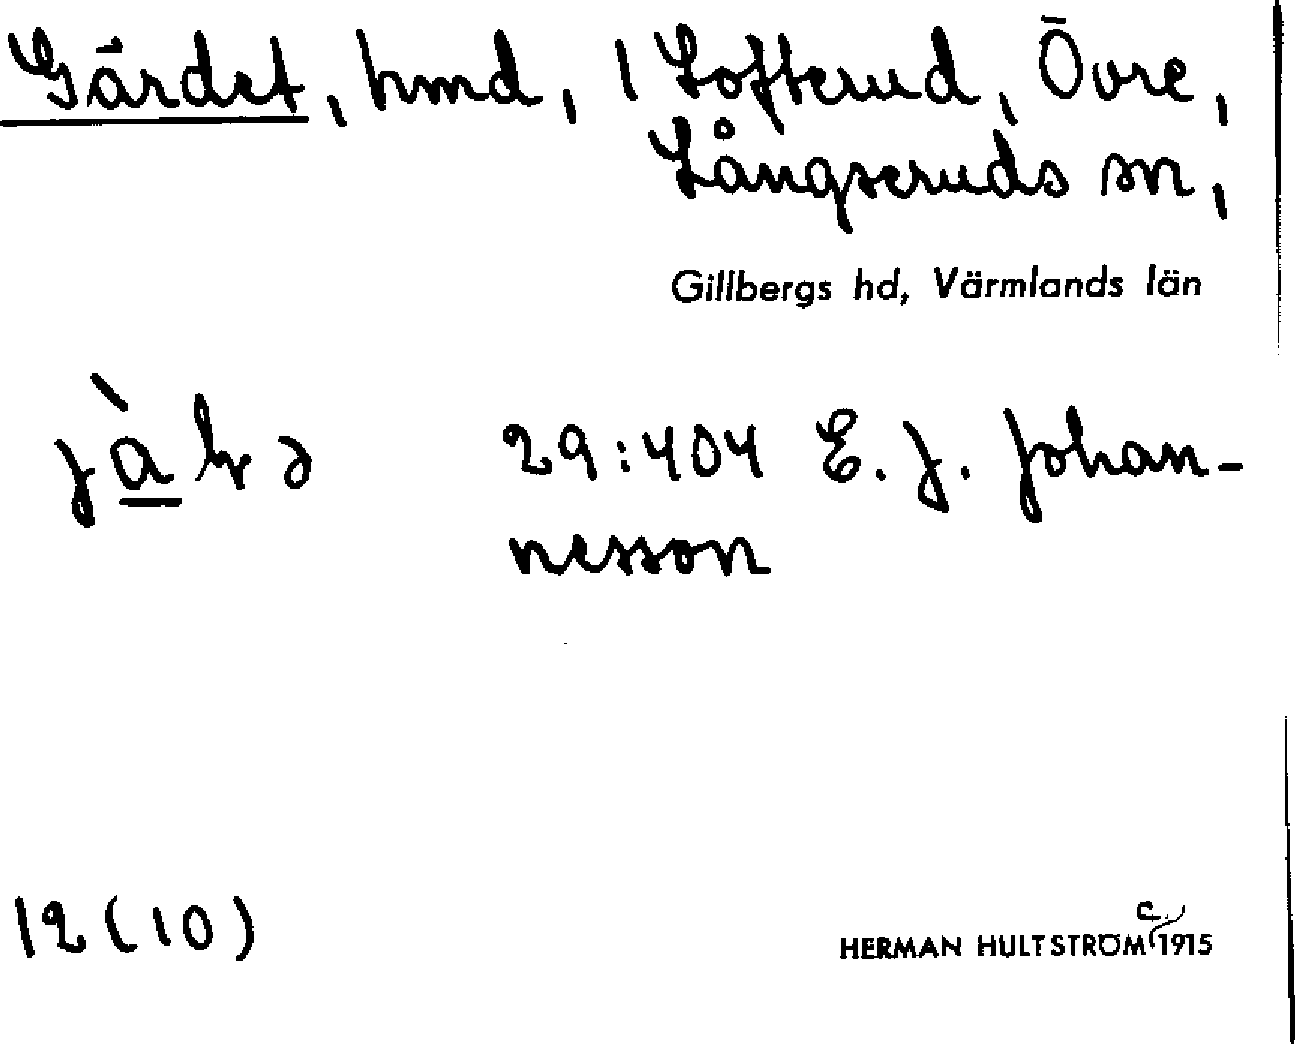 Gärdet, hmd, i Lofterud, Övre,
Långseruds sn,
Gillbergs hd, Värmlands län
29:404 E. J. Johan-
nesson
12 (10)
HERMAN HULTSTRÖM c. 1915